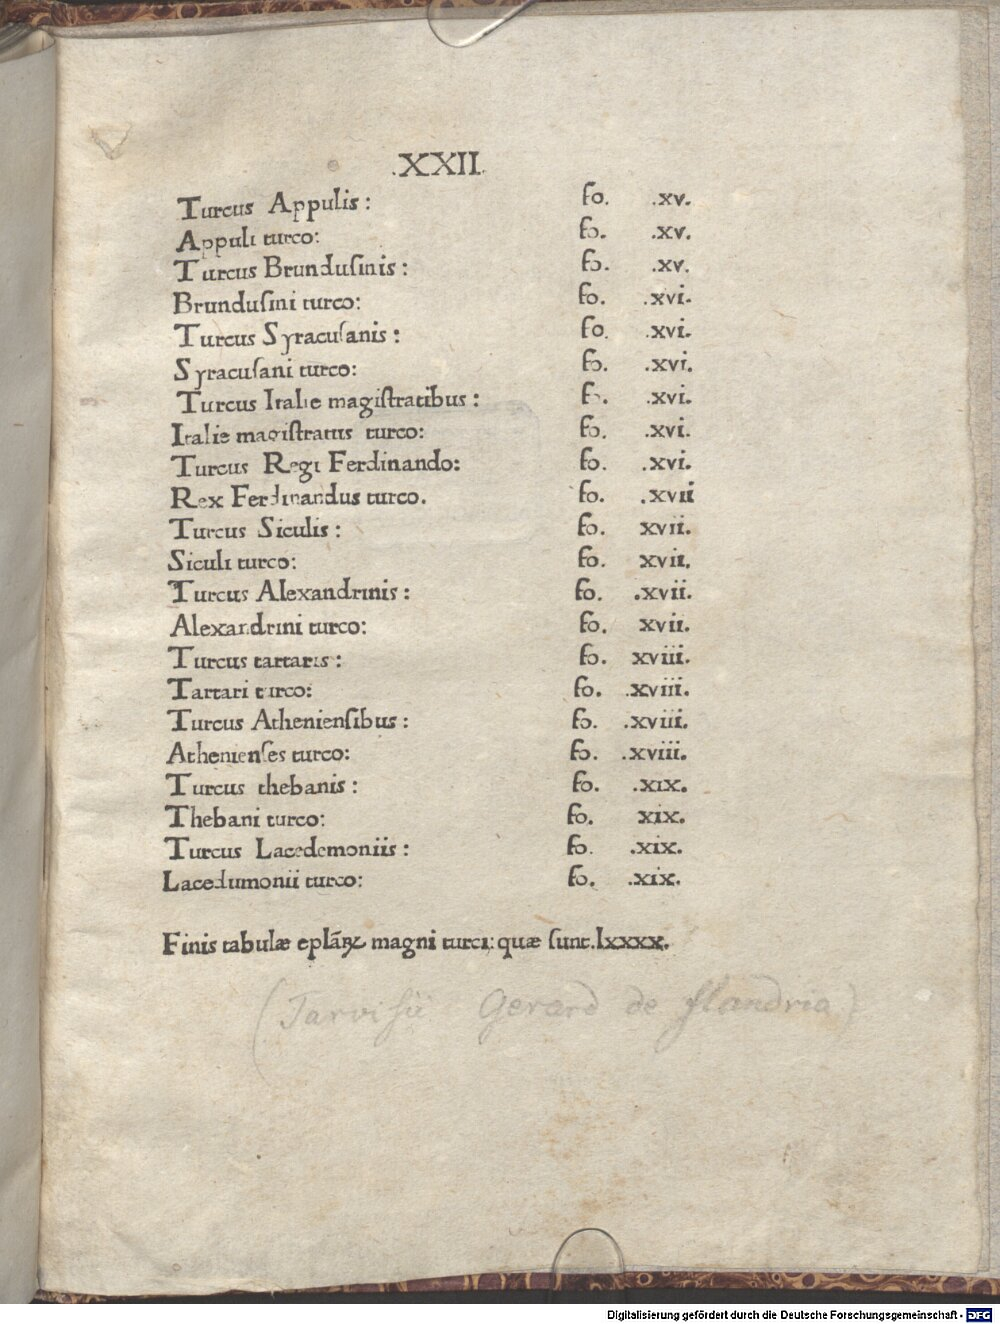 .XXII.
Turcus Appulis: fo. .xv.
Appuli turco: fo. .xv.
Turcus Brundusinis: fo. .xv.
Brundusini turco: fo. .xvi.
Turcus Syracusanis: fo. .xvi.
Syracusani turco: fo. .xvi.
Turcus Italie magistratibus: fo. .xvi.
Italie magistratus turco: fo. .xvi.
Turcus Regi Ferdinando: fo. .xvi.
Rex Ferdinandus turco. fo. .xvii
Turcus Siculis: fo. xvii.
Siculi turco: fo. xvii.
Turcus Alexandrinis: fo. .xvii.
Alexandrini turco: fo. xvii.
Turcus tartaris: fo. xviii.
Tartari turco: fo. .xviii.
Turcus Atheniensibus: fo. .xviii.
Athenienses turco: fo. .xviii.
Turcus thebanis: fo. .xix.
Thebani turco: fo. xix.
Turcus Lacedemoniis: fo. .xix.
Lacedumonii turco: fo. .xix.
Finis tabulæ eplãꝝ magni turci: quæ sunt .lxxxx.
(Tarvisii Gerard de flandria)
Digitalisierung gefördert durch die Deutsche Forschungsgemeinschaft - DFG